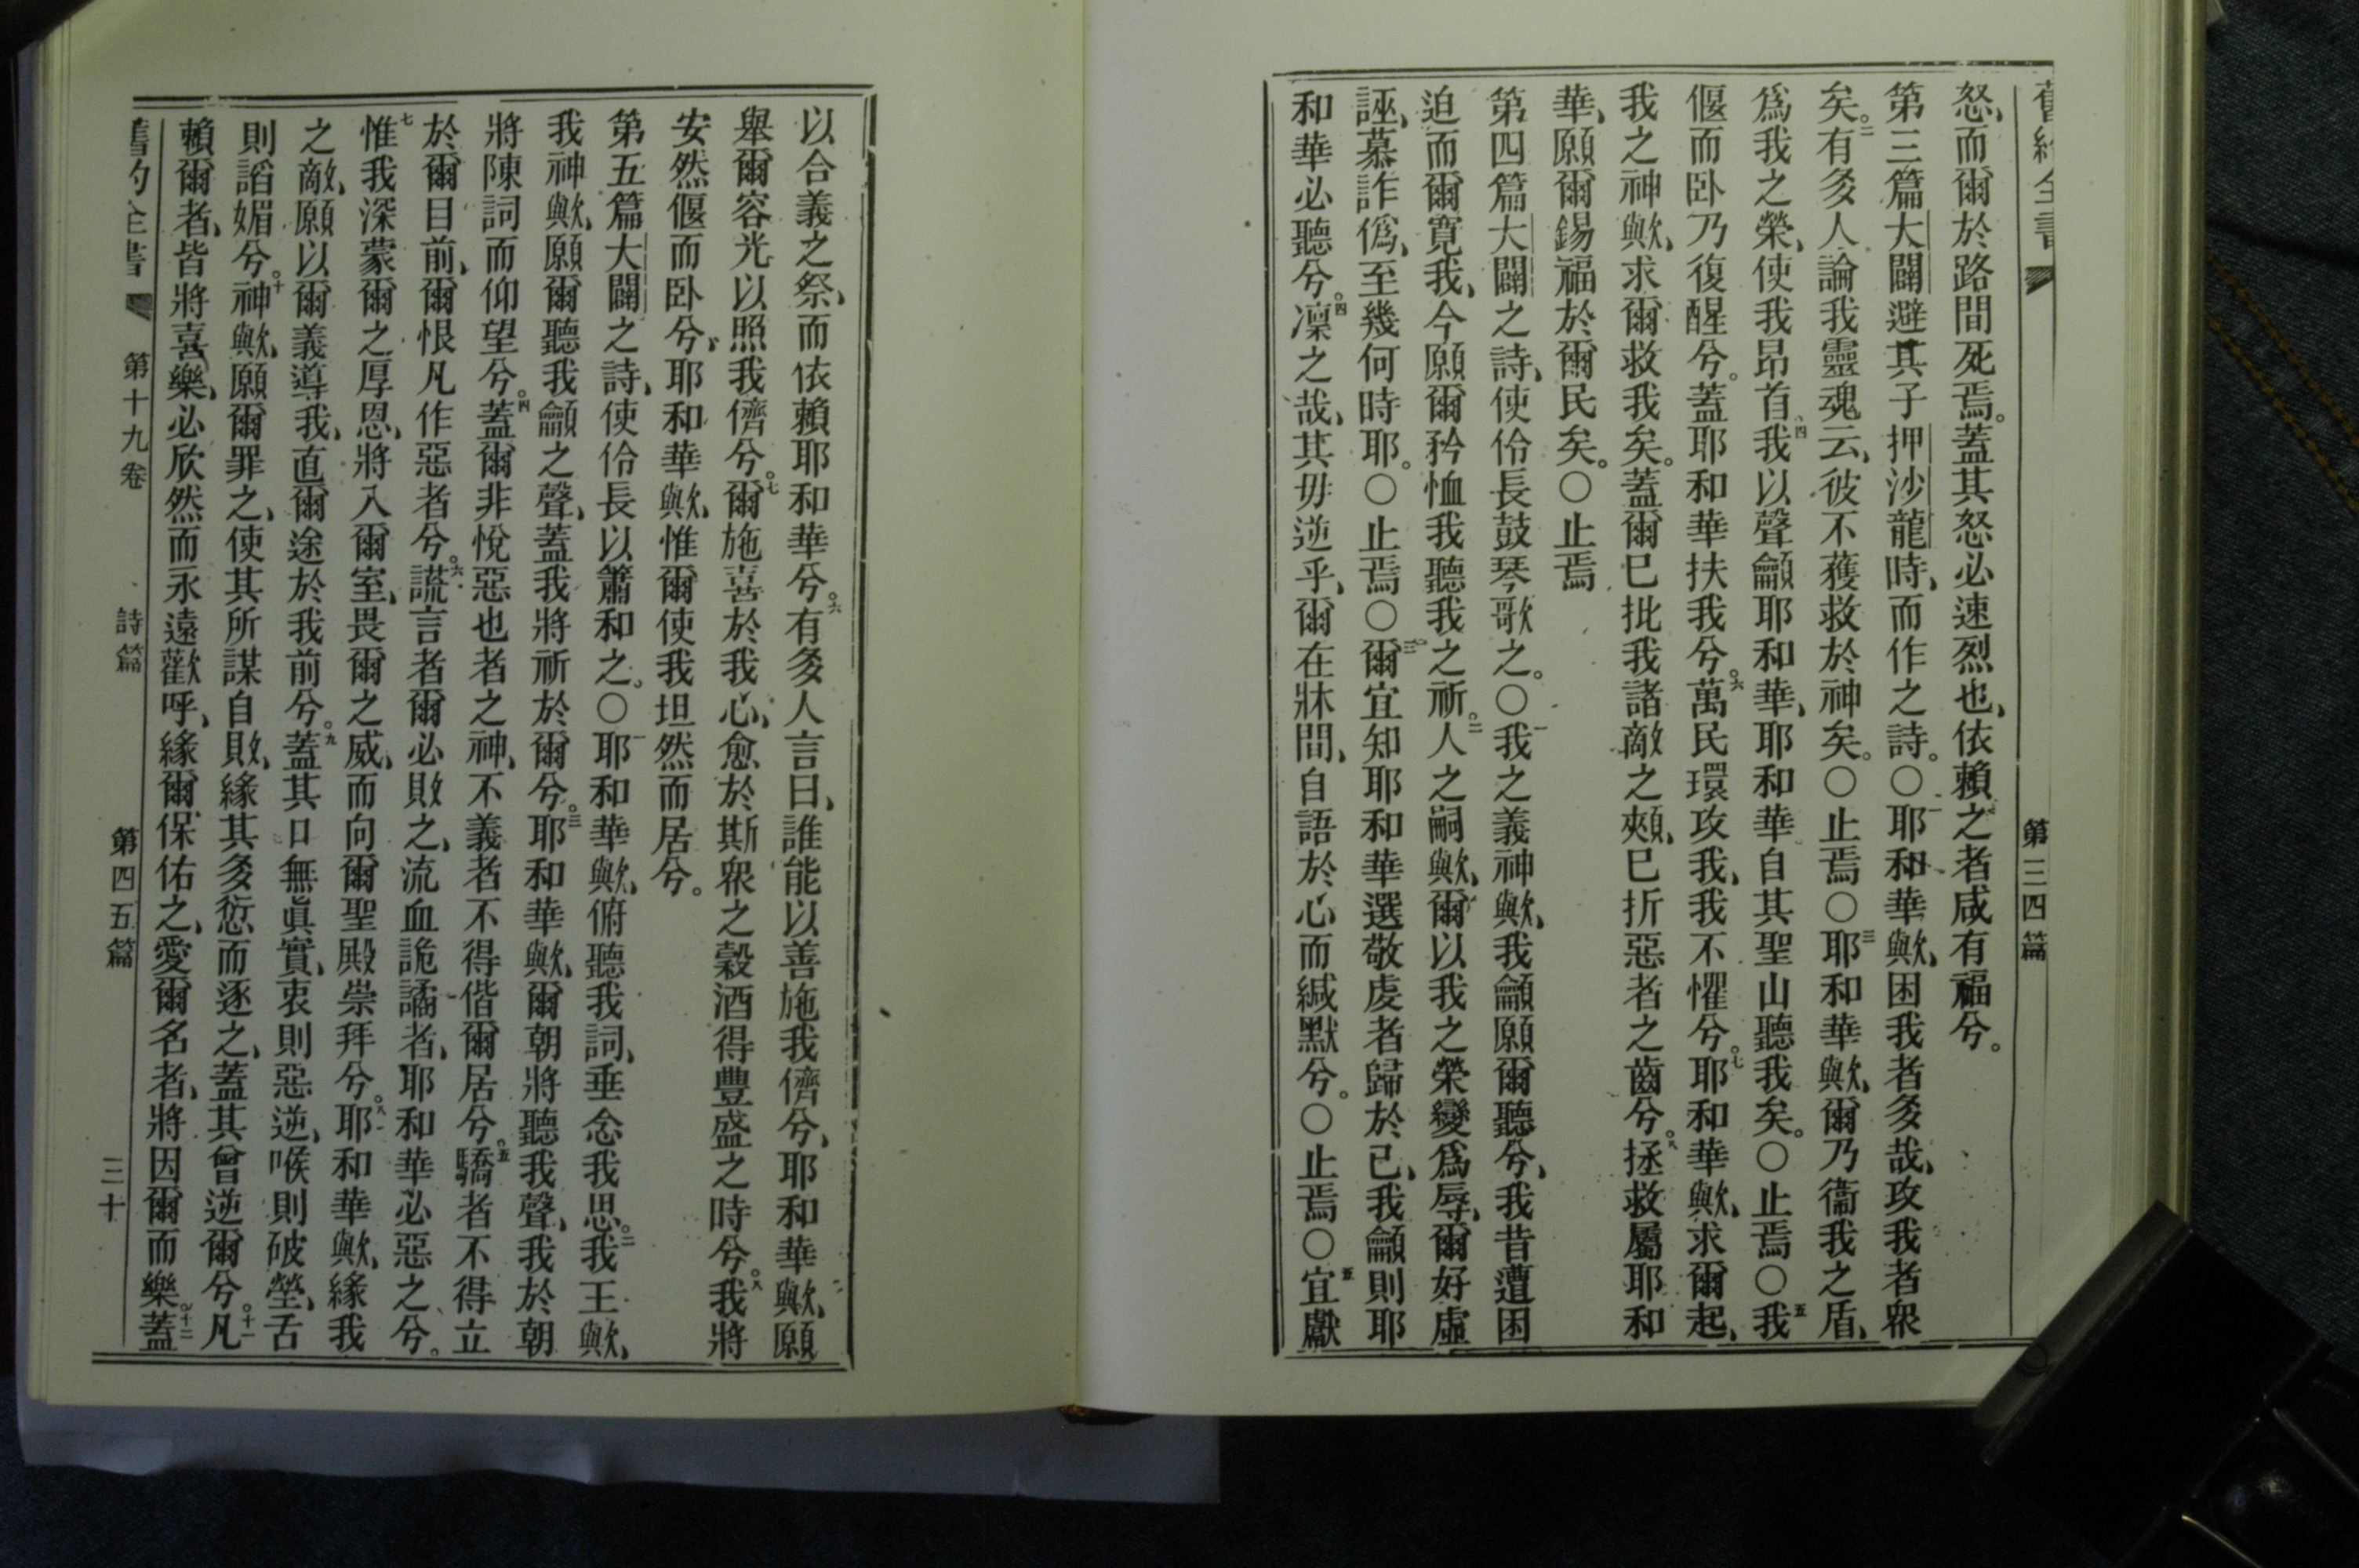 舊約全書 第三四篇
怒、而爾於路間死焉。蓋其怒必速烈也、依賴之者咸有福兮。
第三篇大闢避其子押沙龍時、而作之詩。○一耶和華歟、困我者多哉、攻我者衆
矣。二有多人論我靈魂云、彼不獲救於神矣。○止焉○三耶和華歟、爾乃衞我之盾、
爲我之榮、使我昂首、四我以聲龥耶和華、耶和華自其聖山聽我矣。○止焉○五我
偃而卧乃復醒兮。蓋耶和華扶我兮。六萬民環攻我、我不懼兮。七耶和華歟、求爾起、
我之神歟、求爾救我矣。蓋爾已批我諸敵之頰、已折惡者之齒兮。八拯救屬耶和
華、願爾錫福於爾民矣。○止焉
第四篇大闢之詩、使伶長鼓琴歌之。○一我之義神歟、我龥願爾聽兮、我昔遭困
迫而爾寬我、今願爾矜恤我聽我之祈。二人之嗣歟、爾以我之榮變爲辱、爾好虛
誣、慕詐僞、至幾何時耶。○止焉○三爾宜知耶和華選敬虔者歸於己、我龥則耶
和華必聽兮。四凜之哉、其毋逆乎、爾在牀間、自語於心而緘默兮。○止焉○五宜獻
以合義之祭、而依賴耶和華兮。六有多人言曰、誰能以善施我儕兮、耶和華歟、願
舉爾容光以照我儕兮。七爾施喜於我心、愈於斯衆之穀酒得豐盛之時兮。八我將
安然偃而卧兮、耶和華歟、惟爾使我坦然而居兮。
第五篇大闢之詩、使伶長以簫和之。○一耶和華歟、俯聽我詞、垂念我思。二我王歟、
我神歟、願爾聽我龥之聲、蓋我將祈於爾兮。三耶和華歟、爾朝將聽我聲、我於朝
將陳詞而仰望兮。四蓋爾非悅惡也者之神、不義者不得偕爾居兮。五驕者不得立
於爾目前、爾恨凡作惡者兮。六謊言者爾必敗之、流血詭譎者、耶和華必惡之兮。
七惟我深蒙爾之厚恩、將入爾室、畏爾之威、而向爾聖殿崇拜兮。八耶和華歟、緣我
之敵、願以爾義導我、直爾途於我前兮。九蓋其口無眞實、衷則惡逆、喉則破塋、舌
則謟媚兮。十神歟、願爾罪之、使其所謀自敗、緣其多愆而逐之、蓋其曾逆爾兮。十一凡
賴爾者、皆將喜樂、必欣然而永遠歡呼、緣爾保佑之、愛爾名者、將因爾而樂。十二蓋
舊約全書 第十九卷 詩篇 第四五篇 三十